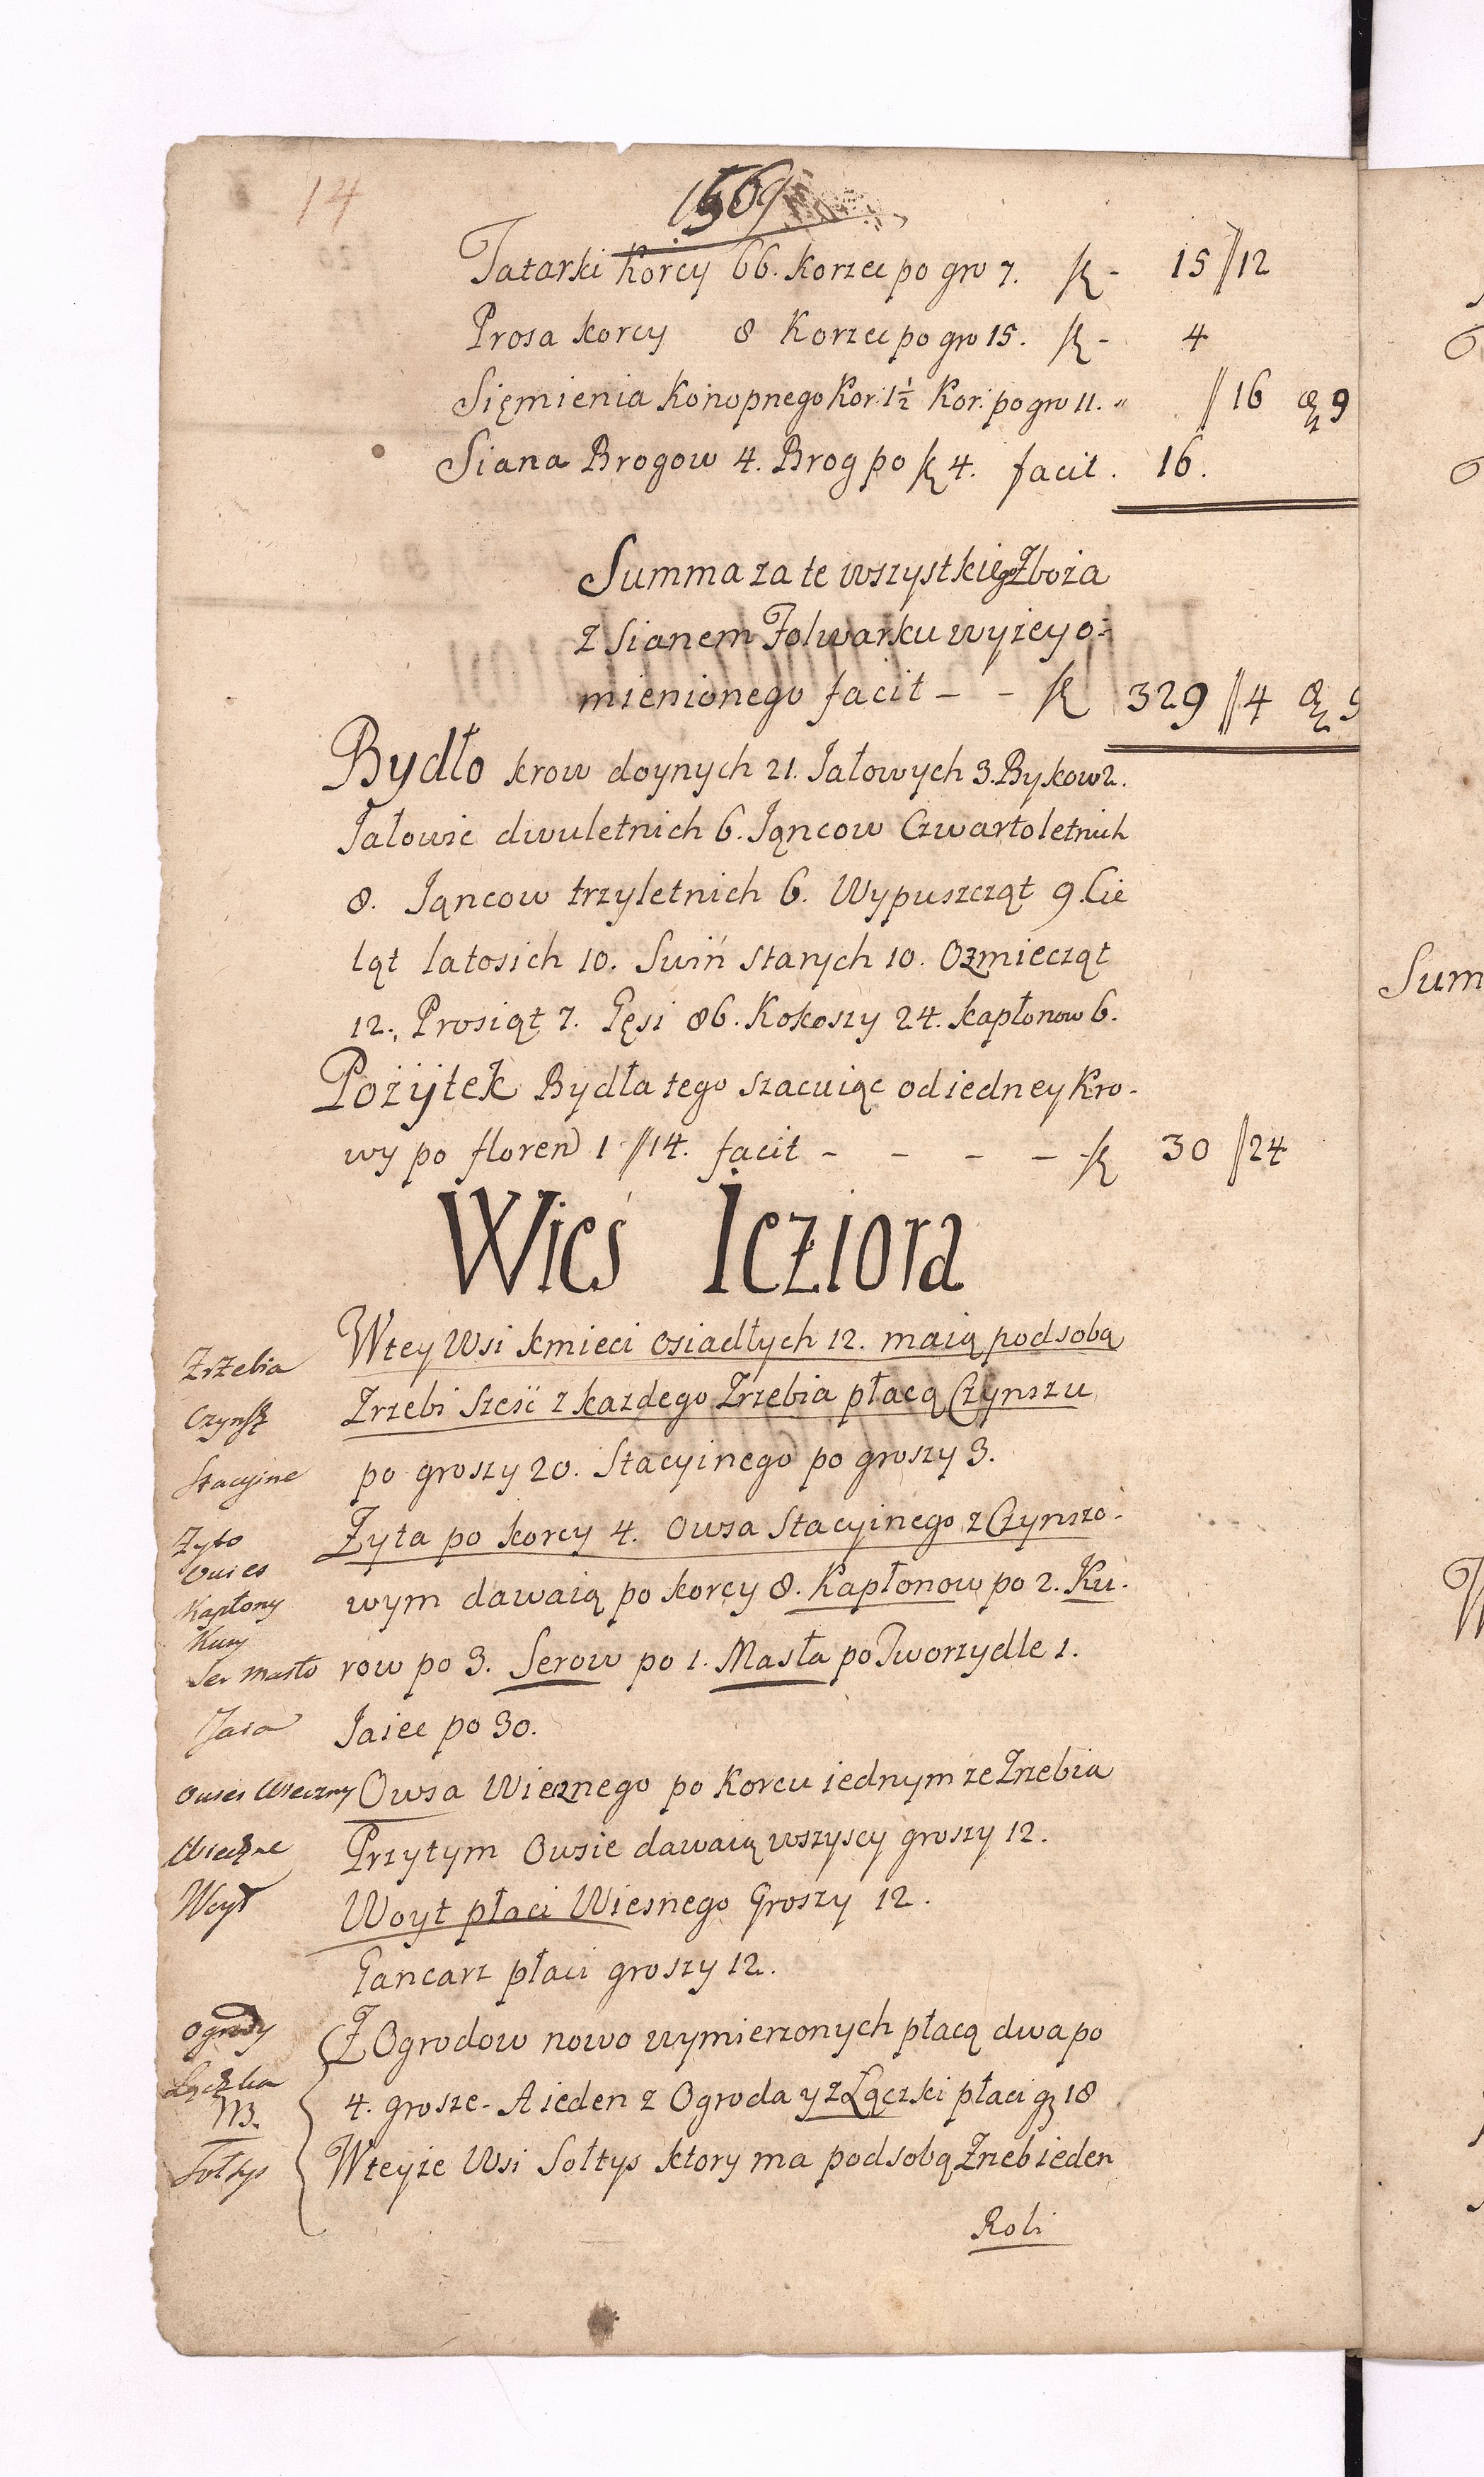 14
1569
Tatarki Korcy 66. Korzec po gro 7. f - 15 // 12
Prosa korcy 8 Korzec po gro 15. f - 4
Sięmienia Konopnego Kor: 1½ Kor: po gro 11. " // 16 9
Siana Brogow 4. Brog po f 4. facit. 16.
Summa za te wszystkie Zboża
z Sianem Folwarku wyżey o:
mienionego facit - - f 329 // 4
Bydło krow doynych 21. Jałowych 3. Bykow 2.
Jałowic dwuletnich 6. Jąncow Czwartoletnich
8. Jąncow trzyletnich 6. Wypuszcząt 9. Cie
ląt latosich 10. Swiń starych 10. Ozmiecząt
12., Prosiąt 7. Gęsi 86. Kokoszy 24. kapłonow 6.
Pożÿtek Bydła tego szacuiąc od iedney Kro-
wy po floren 1 // 14. facit - - - - f 30 // 24
Wieś Ieziora
Zrzebia Wtey Wsi kmieci osiadłych 12. maią pod sobą
Czynsz Zrzebi Sześć z kazdego Zrzebia płacą Czynszu
Stacyjne po groszy 20. Stacyinego po groszy 3.
Zyto Żyta po korcy 4. Owsa Stacyinego z Czynszo-
Owies
Kapłony wym dawaią po korcy 8. Kapłonow po 2. Ku-
Kury
Ser Masło row po 3. Serow po 1. Masła po Tworzydle 1.
Jaia Jaiec po 30.
Owies Wieczny Owsa Wiecznego po Korcu iednym ze Zrzebia
Wieczne Przytym Owsie dawaią wszyscy groszy 12.
Woyt Woyt płaci Wiesnego Groszy 12.
Gancarz płaci groszy 12.
Ogrody Z Ogrodow nowo wymierzonych płacą dwa po
Łączka 4. grosze. A ieden z Ogroda y z Łączki płaci g 18
NB.
Sołtys Wteyże Wsi Sołtys ktory ma pod sobą Zrzeb ieden
Roli
Sum